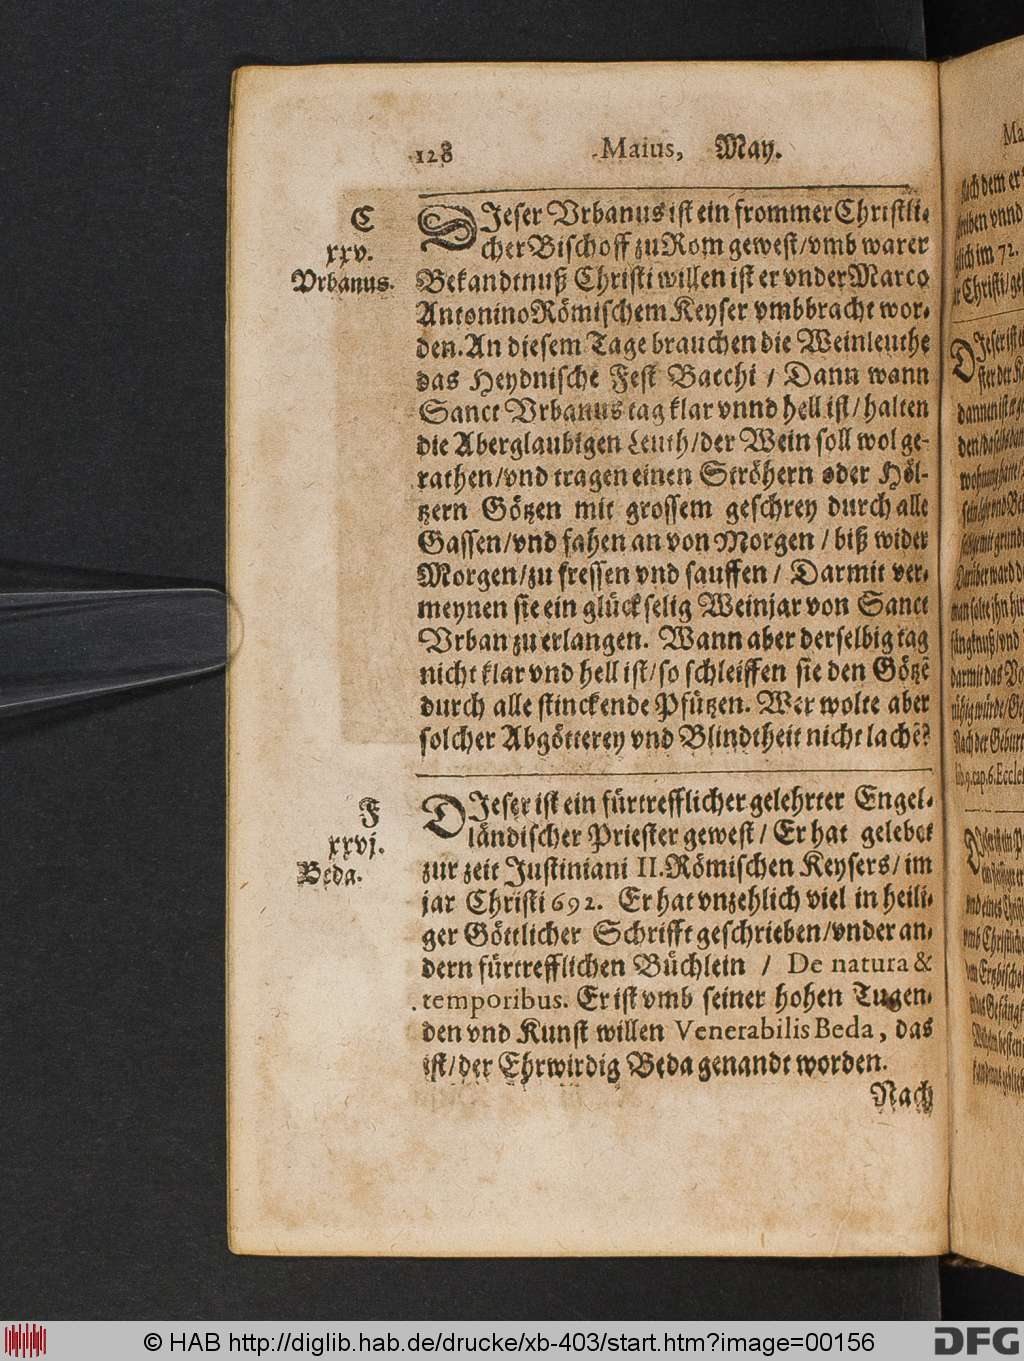 128 Maius, May.
E
xxv.
Vrbanus.
DJeser Vrbanus ist ein frommer Christli-
cher Bischoff zu Rom gewest/vmb warer
Bekandtnuß Christi willen ist er vnder Marco
Antonino Römischem Keyser vmbbracht wor-
den. An diesem Tage brauchen die Weinleuthe
das Heydnische Fest Bacchi / Dann wann
Sanct Vrbanus tag klar vnnd hell ist/halten
die Aberglaubigen Leuth/der Wein soll wol ge-
rathen/vnd tragen einen Ströhern oder Höl-
tzern Götzen mit grossem geschrey durch alle
Gassen/vnd fahen an von Morgen / biß wider
Morgen/zu fressen vnd sauffen / Darmit ver-
meynen sie ein glückselig Weinjar von Sanct
Vrban zu erlangen. Wann aber derselbig tag
nicht klar vnd hell ist/so schleiffen sie den Götzē
durch alle stinckende Pfützen. Wer wolte aber
solcher Abgötterey vnd Blindtheit nicht lachē?
F
xxvj.
Beda.
DJeser ist ein fürtrefflicher gelehrter Engel-
ländischer Priester gewest / Er hat gelebet
zur zeit Justiniani II. Römischen Keysers/im
jar Christi 692. Er hat vnzehlich viel in heili-
ger Göttlicher Schrifft geschrieben/vnder an-
dern fürtrefflichen Büchlein / De natura &
temporibus. Er ist vmb seiner hohen Tugen-
den vnd Kunst willen Venerabilis Beda, das
ist/der Ehrwirdig Beda genandt worden.
Nach
© HAB http://diglib.hab.de/drucke/xb-403/start.htm?image=00156
DFG